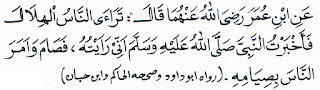 عَنِ ابْنِ عُمَرَ رَضِيَ اللهُ عَنْهُمَا قَالَ : تَرَاءَى النَّاسُ الْهِلَالَ
فَأَخْبَرْتُ النَّبِيَّ صَلَّى اللهُ عَلَيْهِ وَسَلَّمَ اَنِّى رَاَيْتُهُ ، فَصَامَ وَاَمَرَ
النَّاسَ بِصِيَامِهِ . (رواه ابوداود وصححه الحاكم وابن حبان)